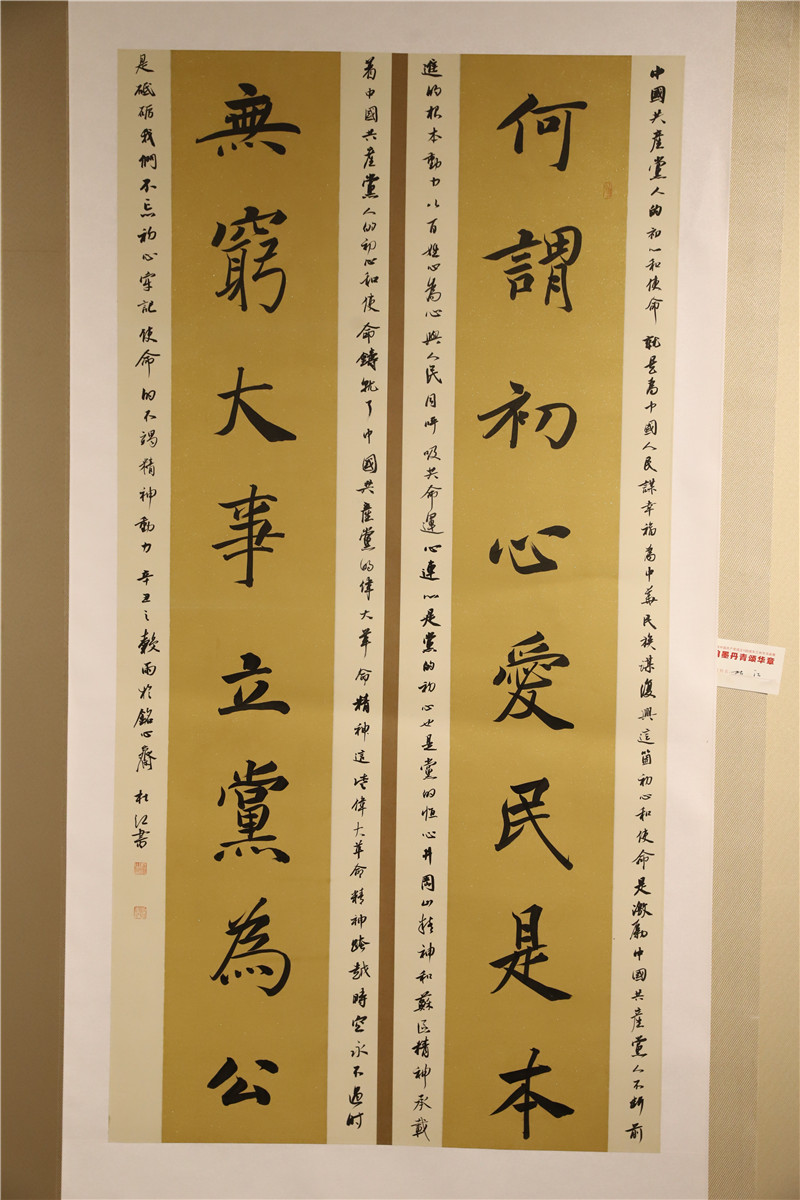 中國共產黨人的初心和使命就是為中國人民謀幸福為中華民族謀復興這箇初心和使命是激勵中國共產黨人不斷前
何謂初心愛民是本
進的根本動力以百姓心為心與人民同呼吸共命運心連心是黨的初心也是黨的恒心井岡山精神和蘇區精神承載
着中國共產黨人的初心和使命鑄就了中國共產黨的偉大革命精神這些偉大革命精神跨越時空永不過時
無窮大事立黨為公
是砥礪我們不忘初心牢記使命的不竭精神動力辛丑之穀雨於銘心齋杜江書
翰墨丹青颂华章
杜江